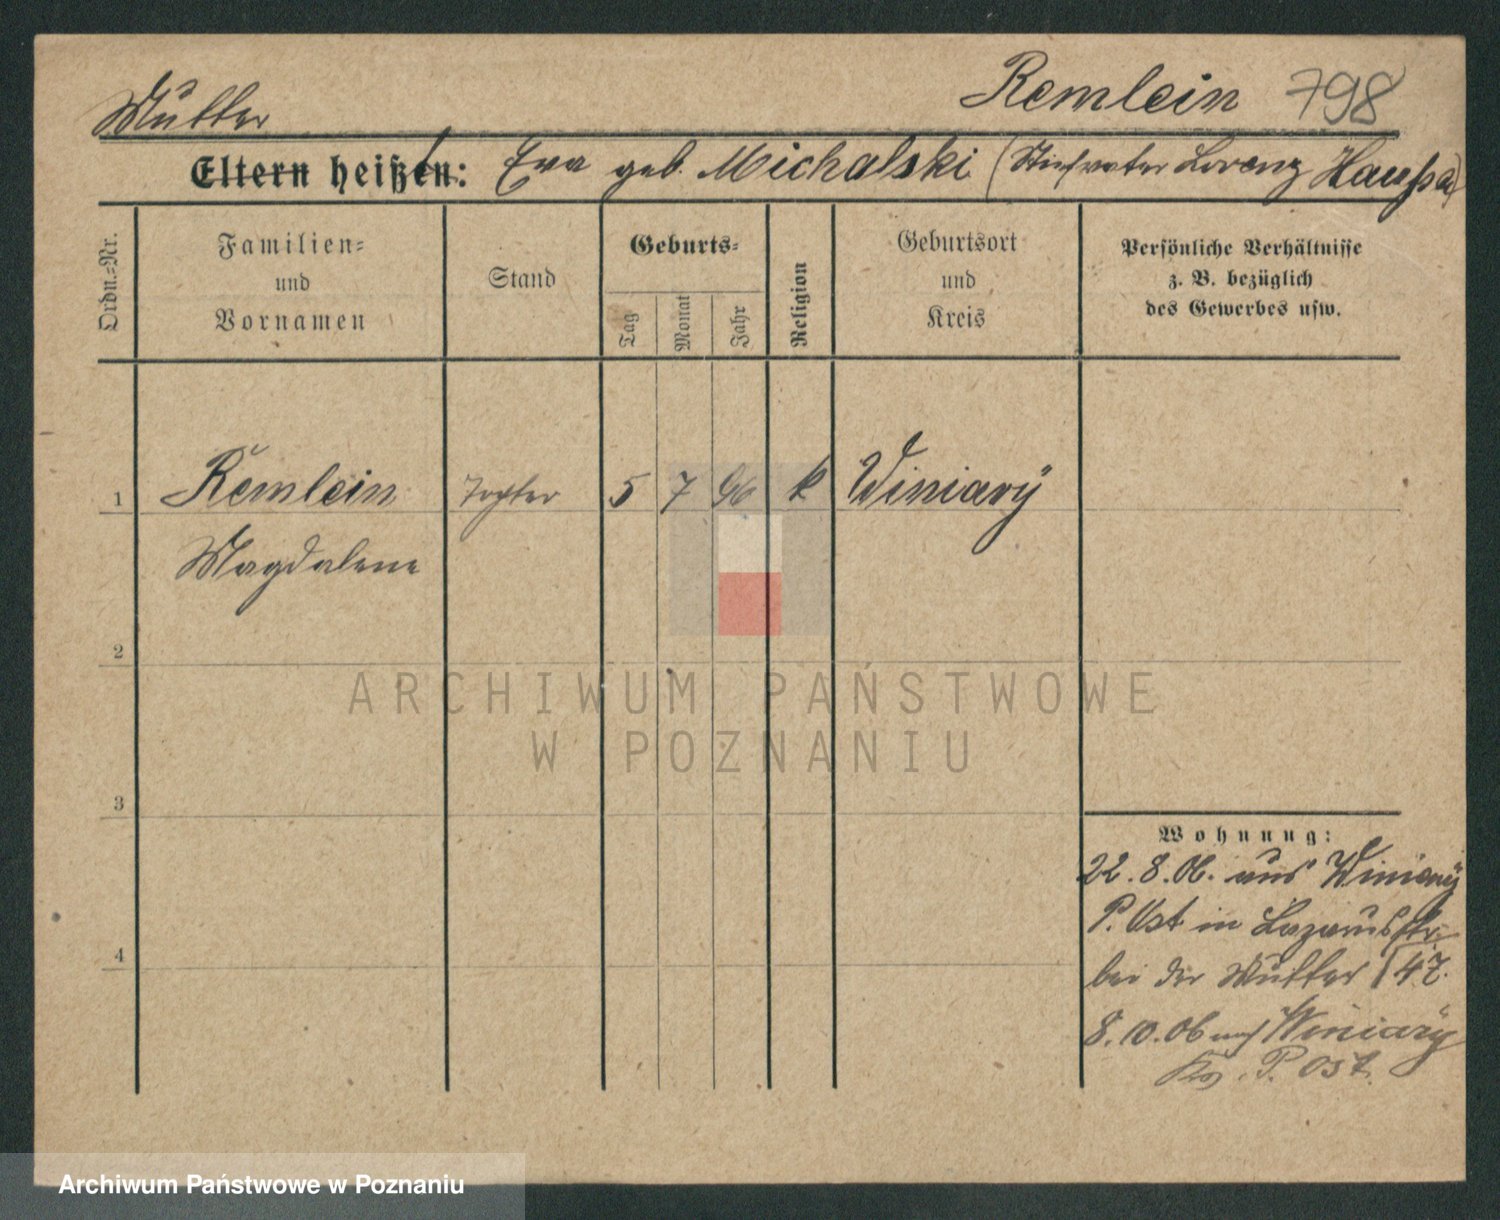 Remlein 798
Mutter
Eltern heißen: Eva geb. Michalski (Stiefvater Lorenz Haussa)
Ordn.-Nr.
Familien-
und
Vornamen
Stand
Geburts-
Tag
Monat
Jahr
Religion
Geburtsort
und
Kreis
Persönliche Verhältnisse
z. B. bezüglich
des Gewerbes usw.
1 Remlein Tochter 5 7 96 k Winiary
Magdalene
2
3
4
ARCHIWUM PAŃSTWOWE
W POZNANIU
Wohnung:
22.8.06. aus Winiary
P. Ost in Lazarusstr.
bei der Mutter 47.
8.10.06 nach Winiary
Krs. P. Ost.
Archiwum Państwowe w Poznaniu